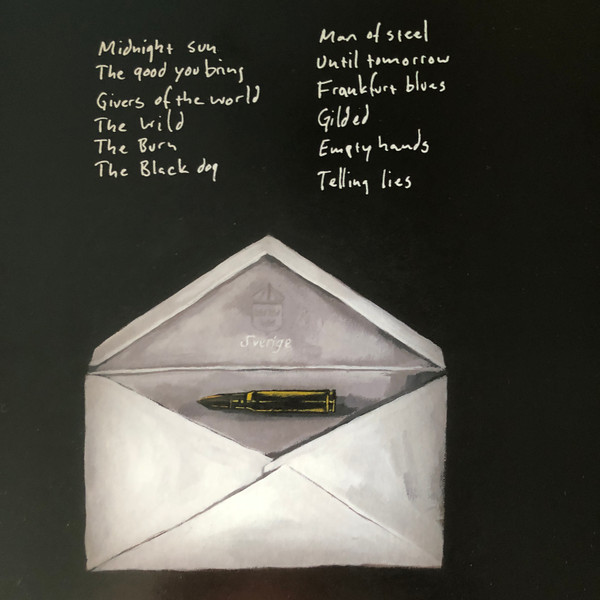 Midnight sun
The good you bring
Givers of the world
The Wild
The Burn
The Black dog
Man of steel
Until tomorrow
Frankfurt blues
Gilded
Empty hands
Telling lies
Sverige